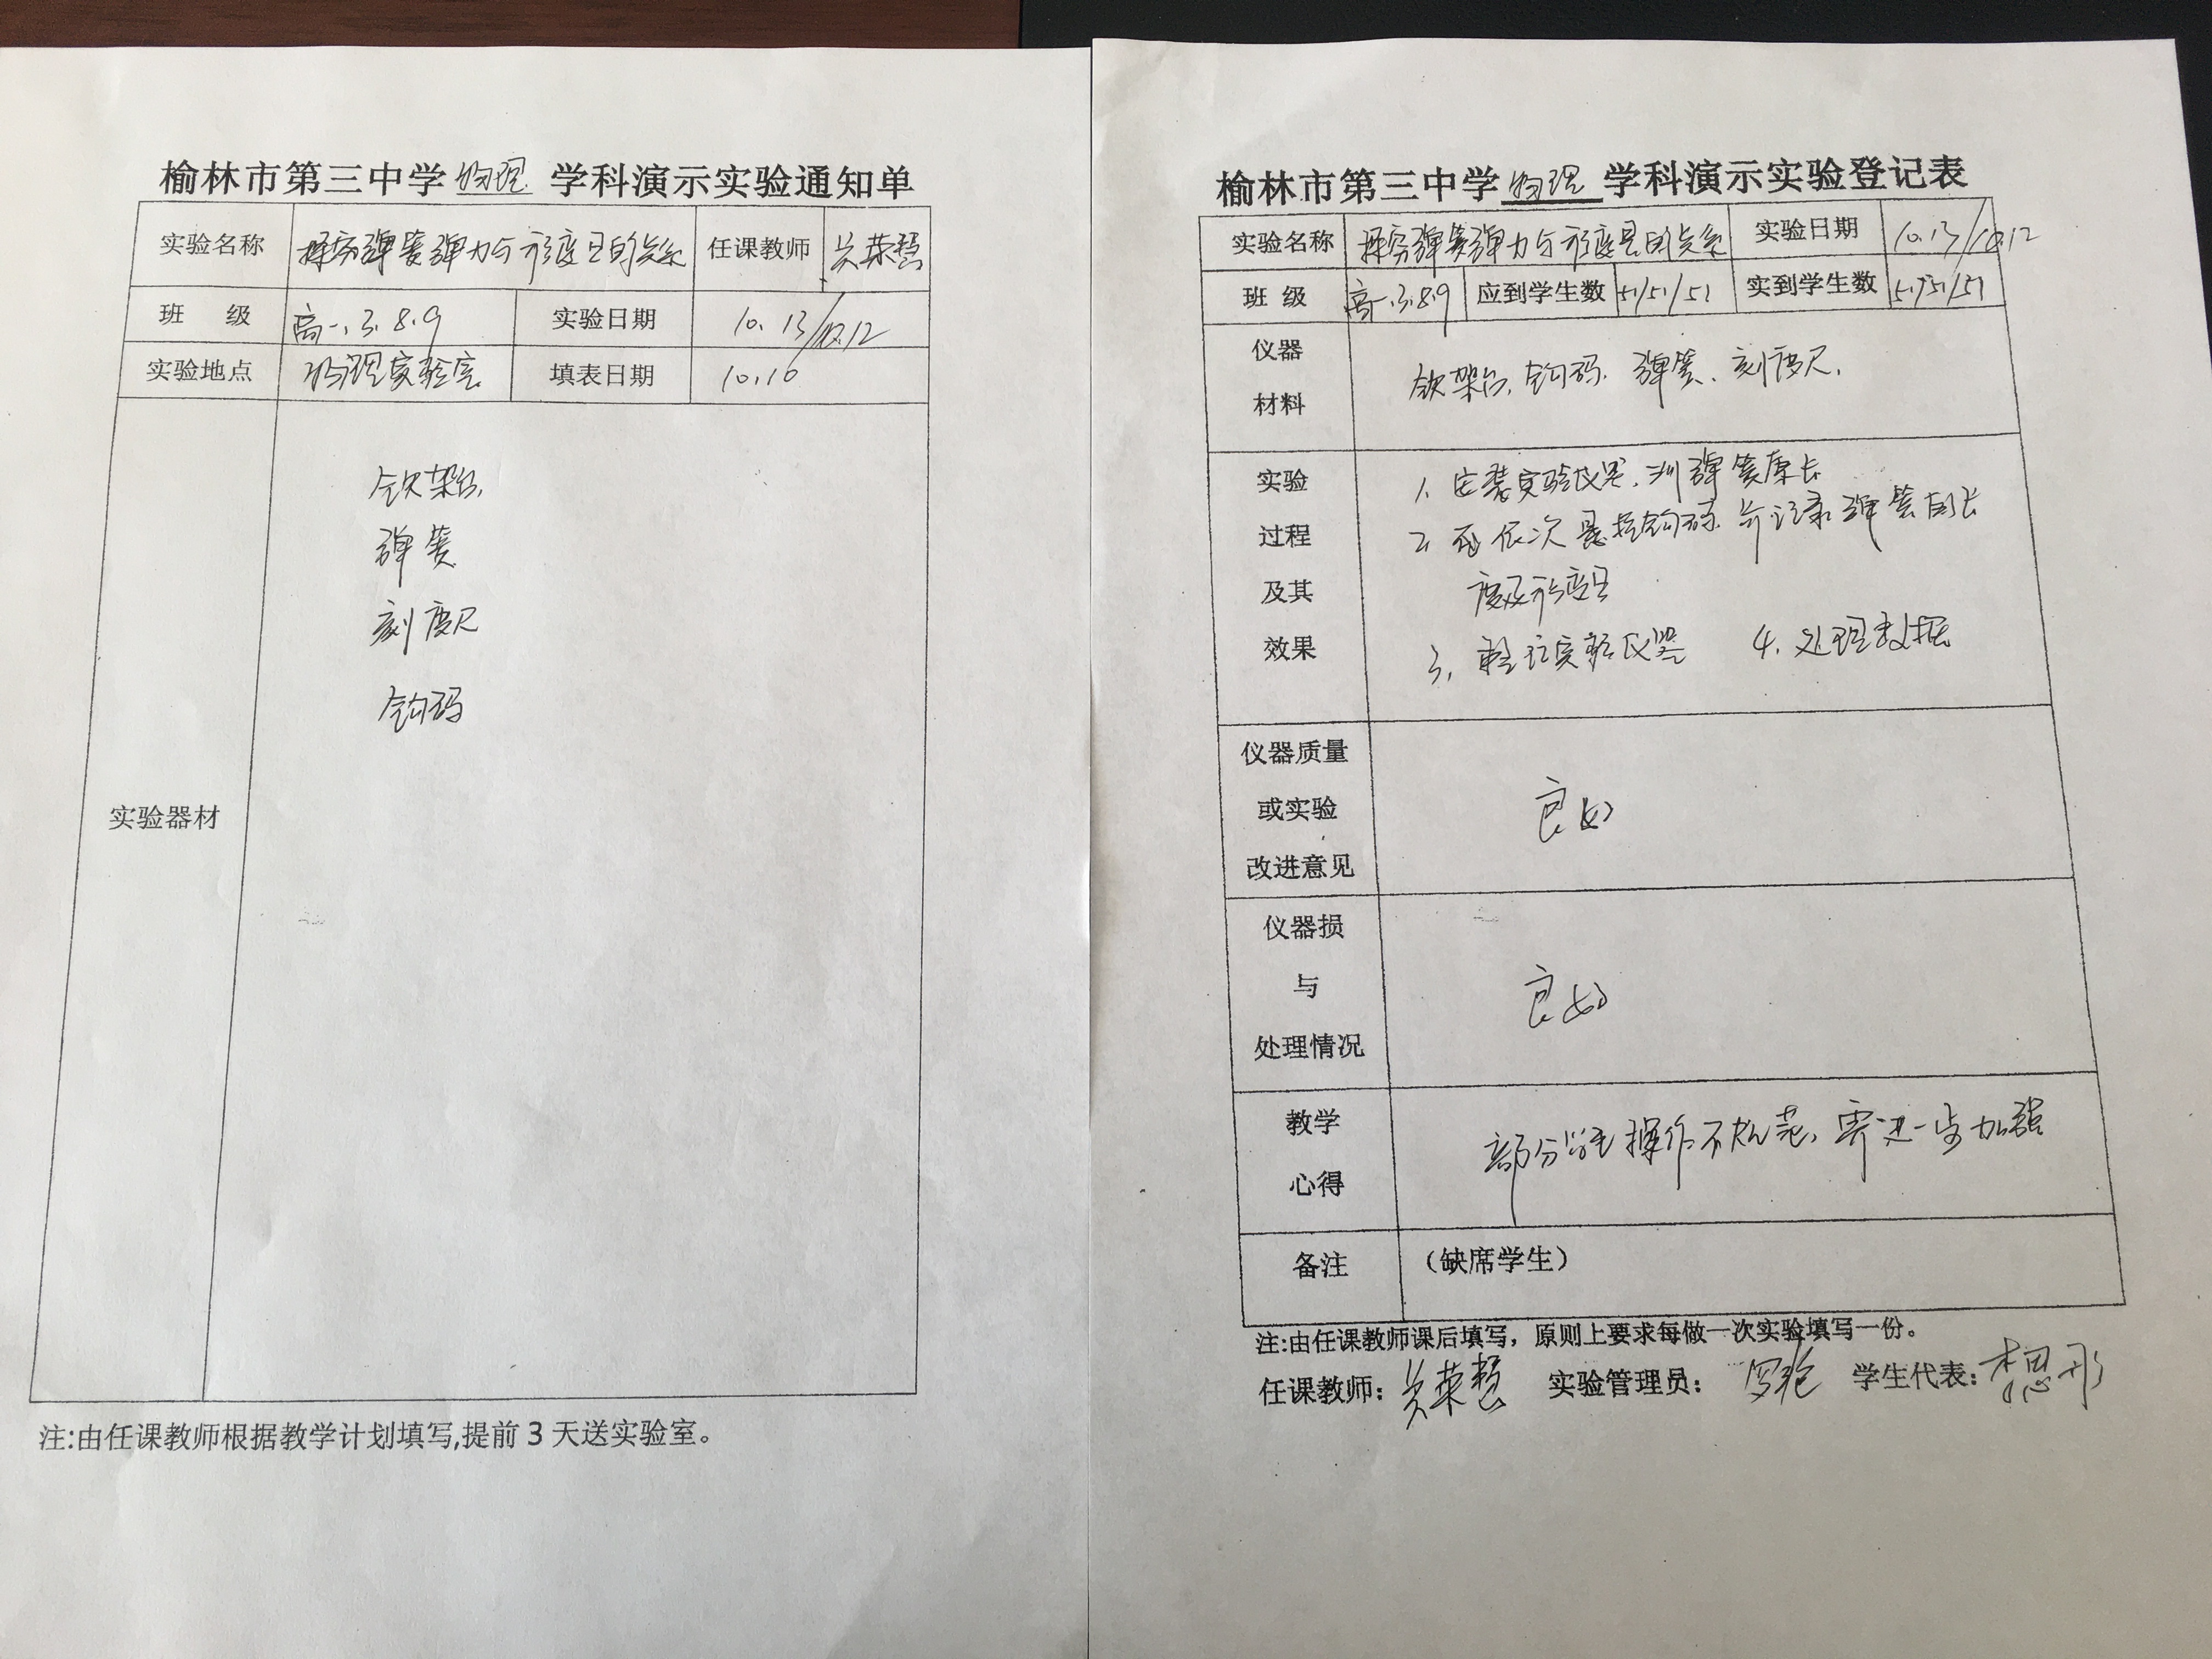 榆林市第三中学物理学科演示实验通知单
实验名称 探究弹簧弹力与形变量的关系 任课教师 吴荣慧
班 级 高一.3.8.9 实验日期 10.13/10.12
实验地点 物理实验室 填表日期 10.10
实验器材
铁架台
弹簧
刻度尺
钩码
注:由任课教师根据教学计划填写,提前3天送实验室。
榆林市第三中学物理学科演示实验登记表
实验名称 探究弹簧弹力与形变量的关系 实验日期 10.13/10.12
班 级 高一.3.8.9 应到学生数 51/51/51 实到学生数 51/51/51
仪器
材料
铁架台、钩码、弹簧、刻度尺.
实验
过程
及其
效果
1、安装实验仪器,测弹簧原长
2、依次悬挂钩码 并记录弹簧的长
度及形变量
3、整理实验仪器 4、处理数据
仪器质量
或实验
改进意见
良好
仪器损
与
处理情况
良好
教学
心得
部分学生操作不规范,需进一步加强
备注 (缺席学生)
注:由任课教师课后填写，原则上要求每做一次实验填写一份。
任课教师:吴荣慧 实验管理员: 学生代表: